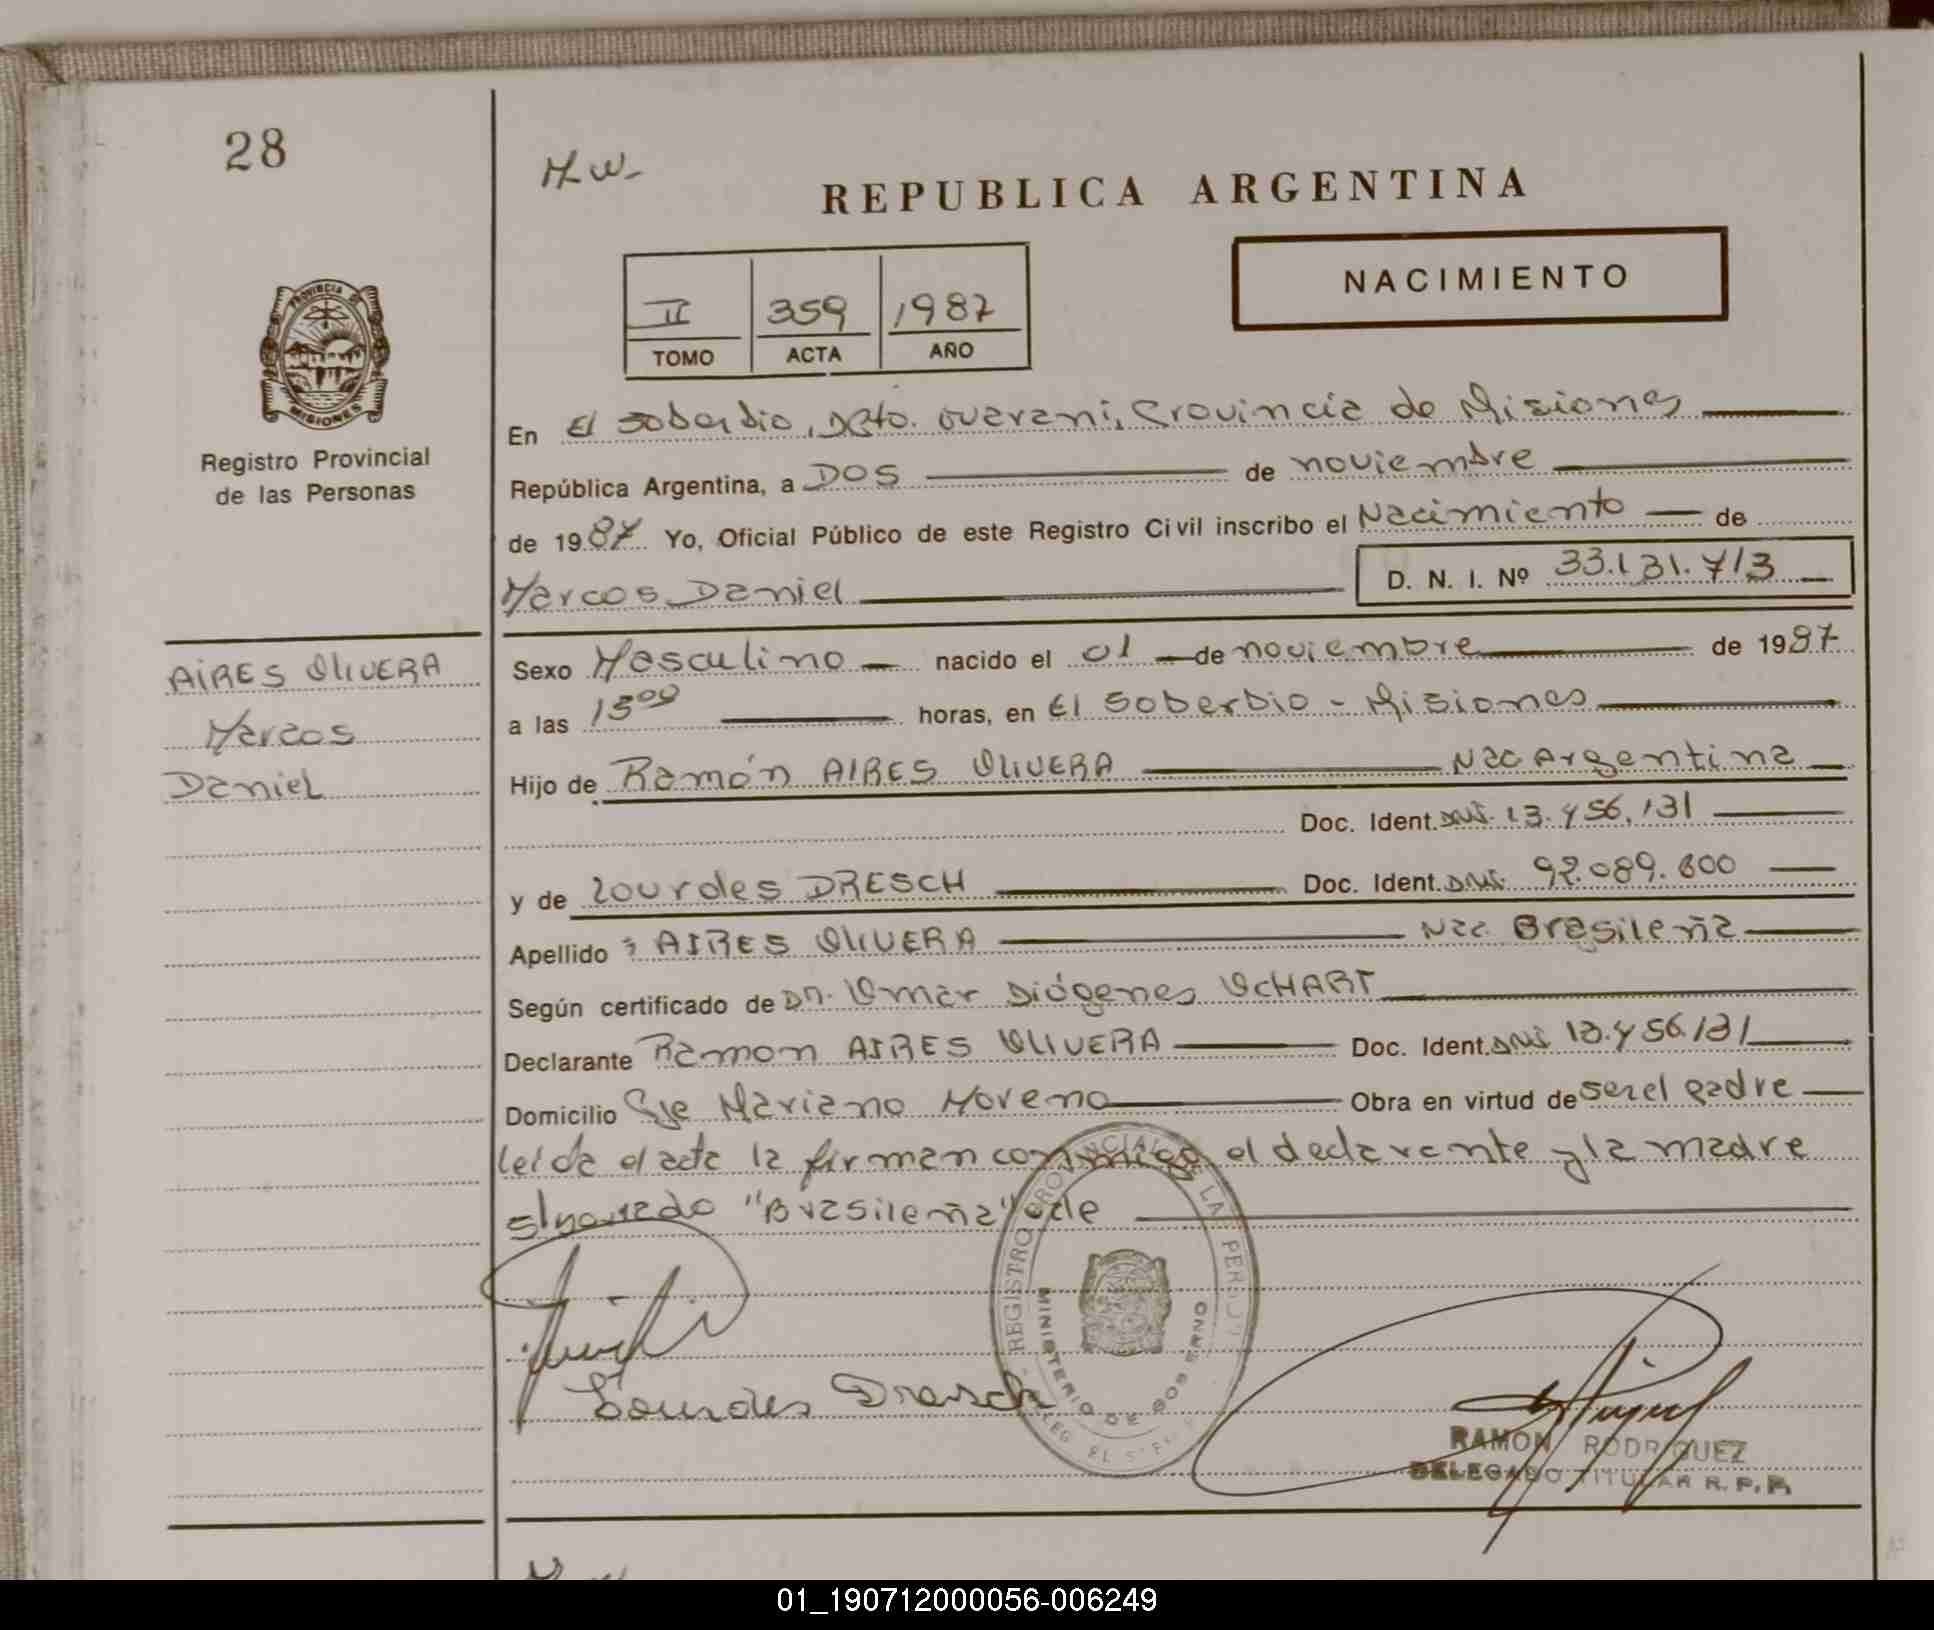 28
M.W.
REPUBLICA ARGENTINA
NACIMIENTO
II 359 1987
TOMO ACTA AÑO
PROVINCIA DE
MISIONES
Registro Provincial
de las Personas
En El Soberbio, Dpto. Guarani, Provincia de Misiones
República Argentina, a DOS de noviembre
de 1987 Yo, Oficial Público de este Registro Civil inscribo el Nacimiento de
Marcos Daniel D. N. I. Nº 33.131.713
AIRES OLIVERA
Marcos
Daniel
Sexo Masculino nacido el 01 de noviembre de 1987
a las 15 00 horas, en El Soberbio - Misiones
Hijo de Ramón AIRES OLIVERA Nac Argentina
Doc. Ident. DNI. 13.456.131
y de Lourdes DRESCH Doc. Ident. DNI. 92.089.600
Apellido : AIRES OLIVERA Nac. Brasileña
Según certificado de Dn. Omar Diógenes OCHART
Declarante Ramon AIRES OLIVERA Doc. Ident. DNI 13.456.131
Domicilio Pje Mariano Moreno Obra en virtud de ser el padre
leida el acta la firman conmigo el declarante y la madre
"Brasileña" vale
REGISTRO PROVINCIAL DE LAS PERSON
MINISTERIO DE GOBIERNO
Lourdes Dresch
RAMON RODRIGUEZ
DELEGADO TITULAR R. P. P.
01_190712000056-006249